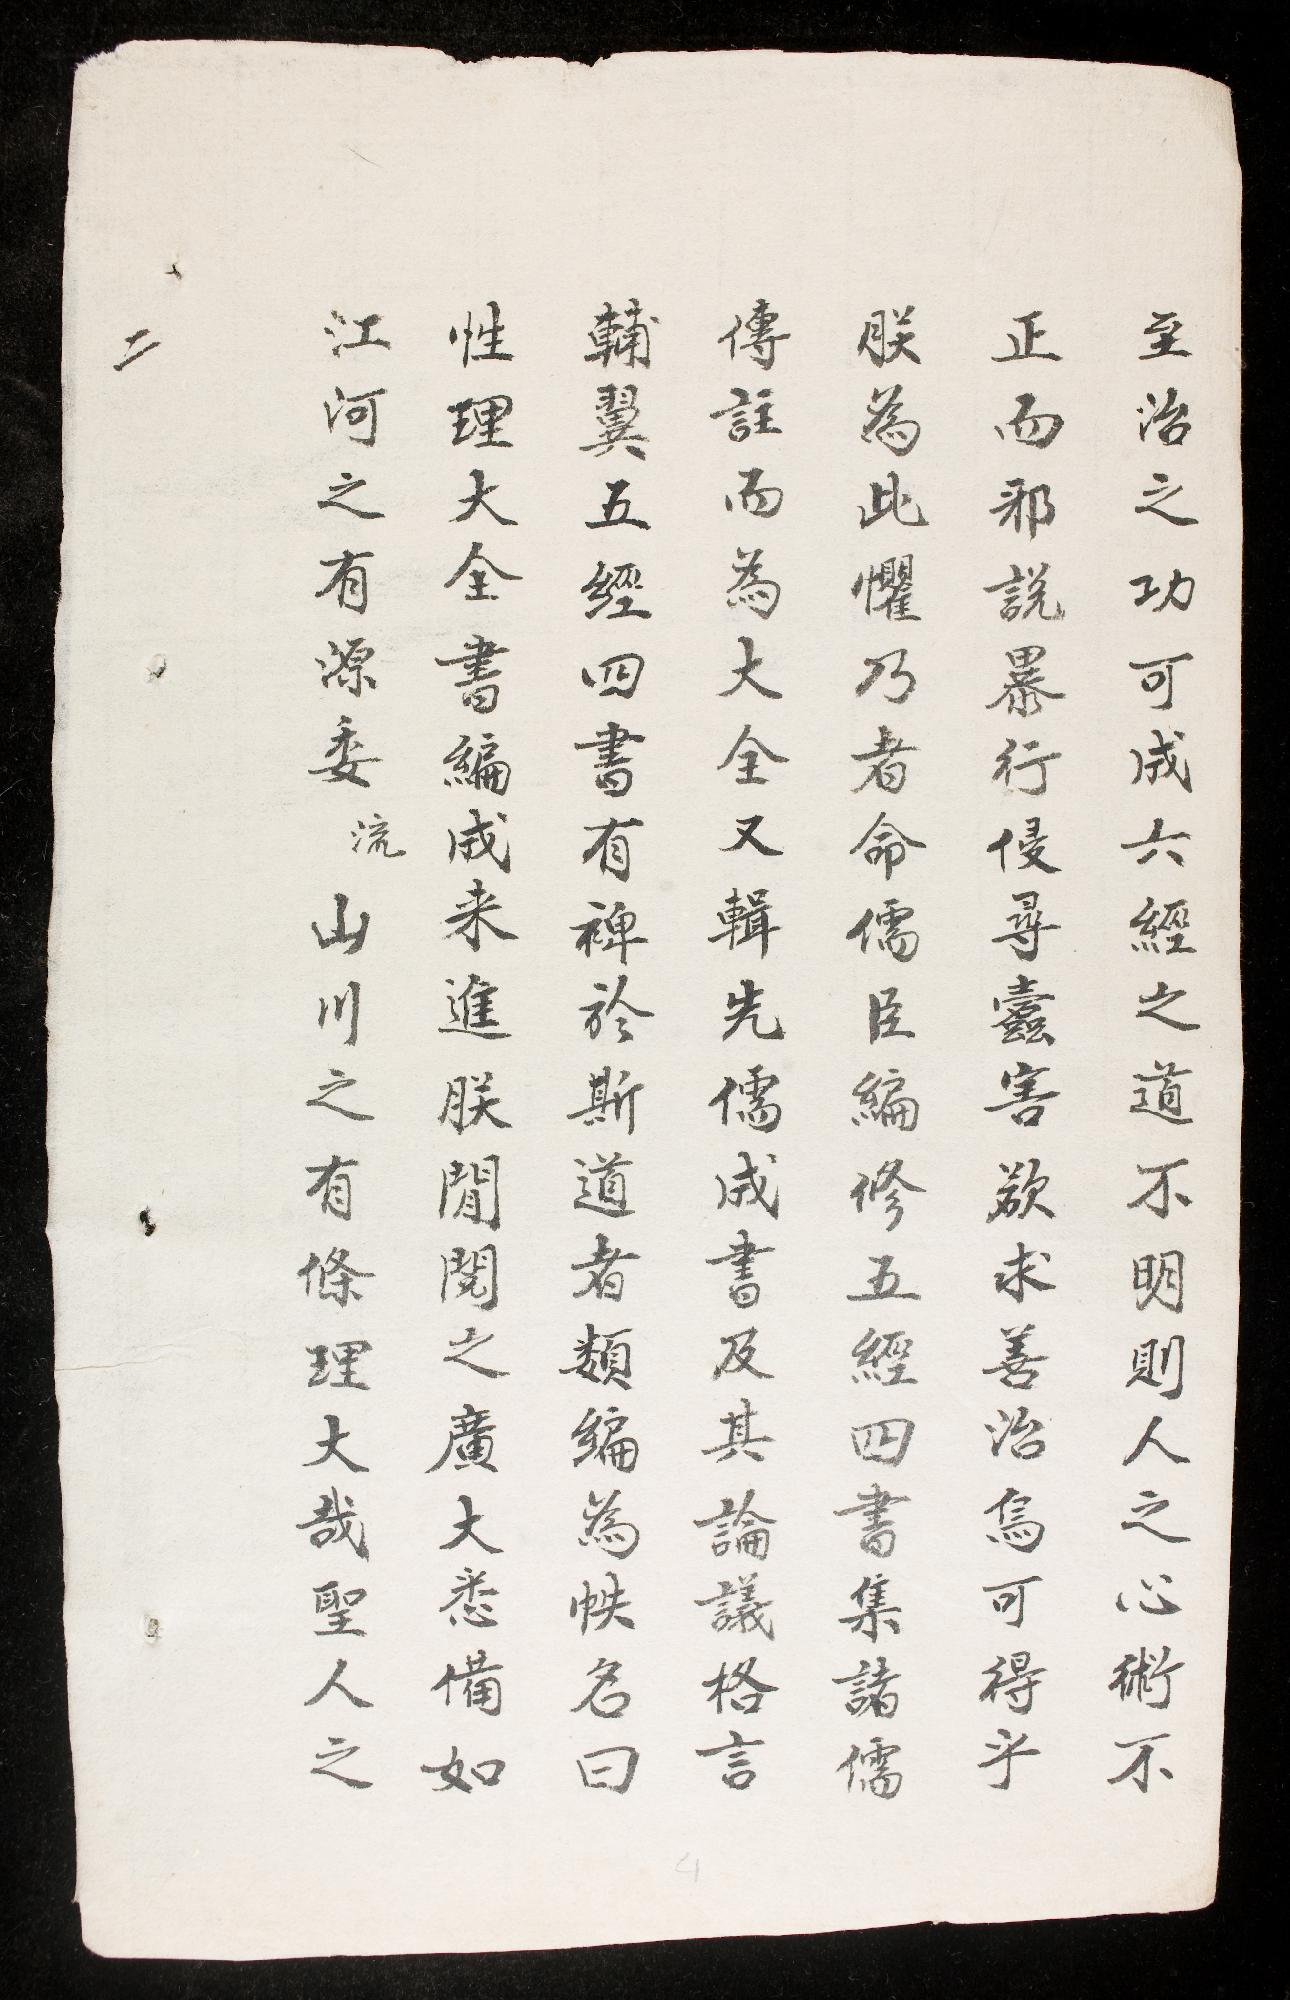 至治之功可成六經之道不明則人之心術不
正而邪説暴行侵尋蠹害欲求善治焉可得乎
朕為此懼乃者命儒臣編修五經四書集諸儒
傳註而為大全又輯先儒成書及其論議格言
輔翼五經四書有裨於斯道者類編為帙名曰
性理大全書編成来進朕閒閱之廣大悉備如
江河之有源委流山川之有條理大哉聖人之
二
4